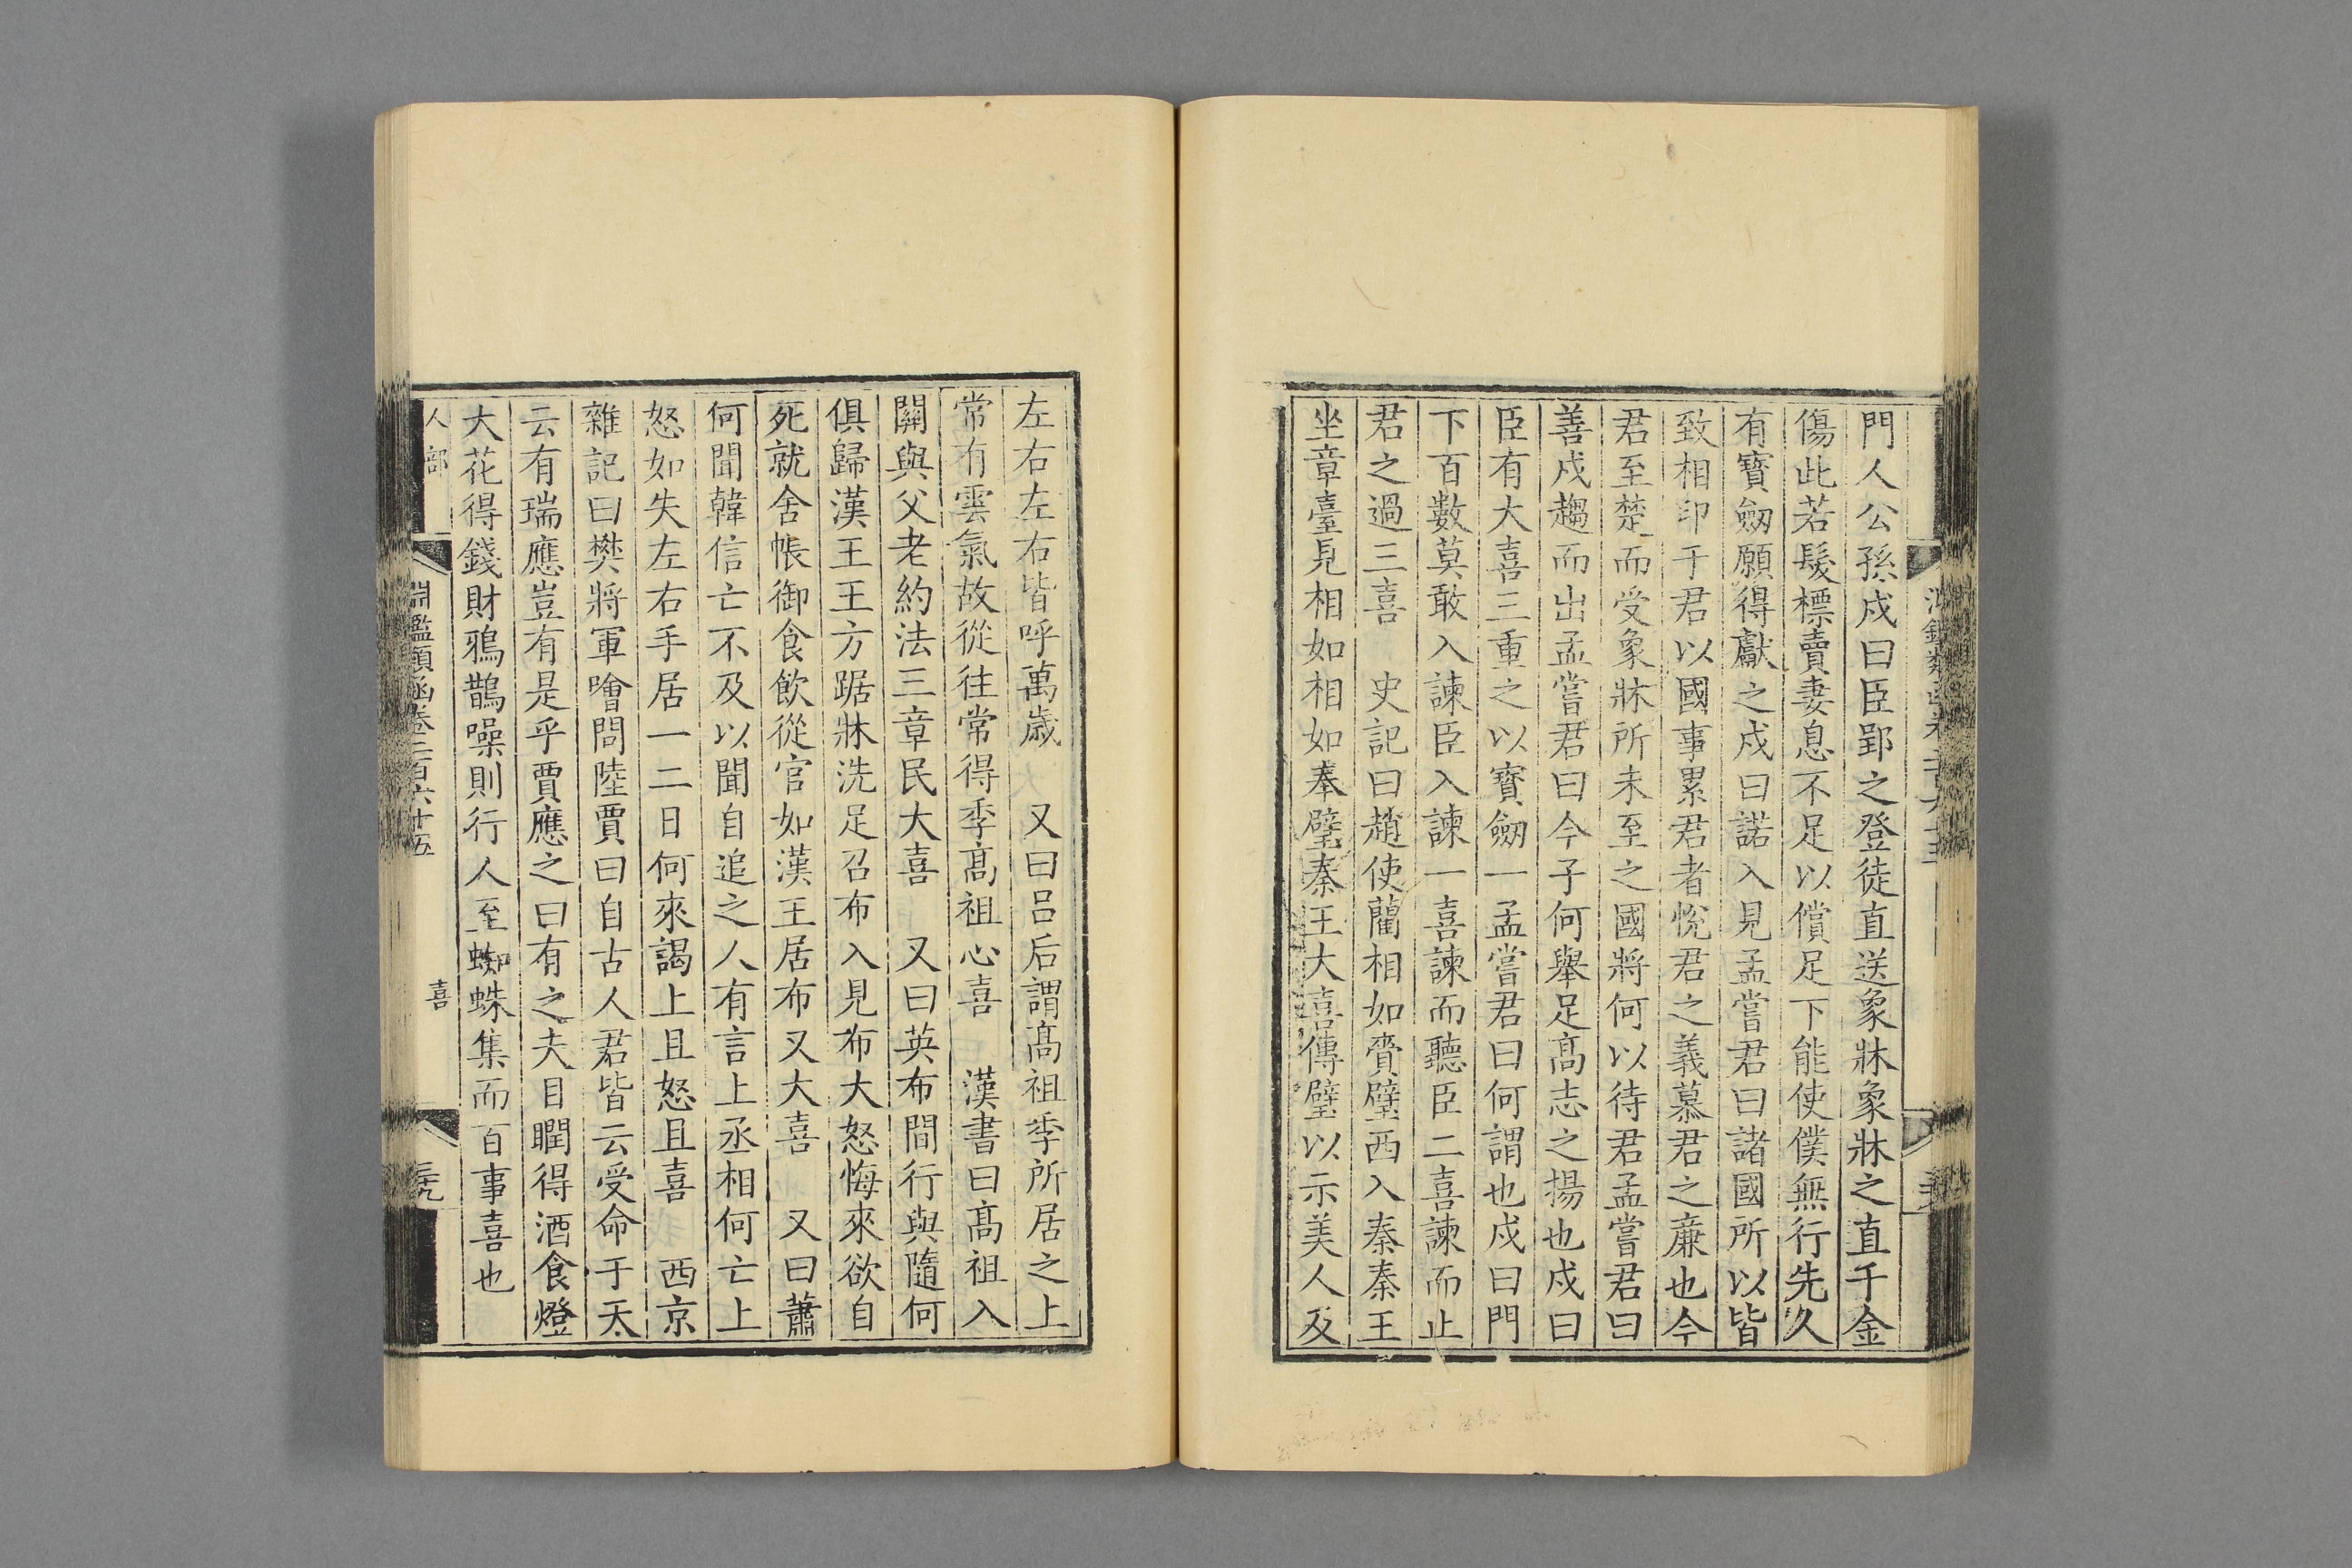 門人公孫戍曰臣郢之登徒直送象牀象牀之直千金
傷此若髮標賣妻息不足以償足下能使僕無行先久
有寶劒願得獻之戍曰諾入見孟嘗君曰諸國所以皆
致相印于君以國事累君者悅君之義慕君之廉也今
君至楚而受象牀所未至之國將何以待君孟嘗君曰
善戍趨而出孟嘗君曰今子何舉足高志之揚也戍曰
臣有大喜三重之以寶劒一孟嘗君曰何謂也戍曰門
下百數莫敢入諫臣入諫一喜諫而聽臣二喜諫而止
君之過三喜　史記曰趙使藺相如賫璧西入秦秦王
坐章臺見相如相如奉璧秦王大喜傳璧以示美人及
左右左右皆呼萬歲　又曰呂后謂髙祖季所居之上
常有雲氣故從往常得季髙祖心喜　漢書曰髙祖入
關與父老約法三章民大喜　又曰英布間行與隨何
俱歸漢王王方踞牀洗足召布入見布大怒悔來欲自
死就舍帳御食飲從官如漢王居布又大喜　又曰蕭
何聞韓信亡不及以聞自追之人有言上丞相何亡上
怒如失左右手居一二日何來謁上且怒且喜　西京
雜記曰樊將軍噲問陸賈曰自古人君皆云受命于天
云有瑞應豈有是乎賈應之曰有之夫目瞤得酒食燈
大花得錢財鴉鵲噪則行人至蜘蛛集而百事喜也
人部　淵鑑類函卷二百六十五　喜